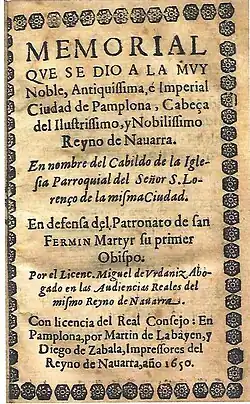 MEMORIAL
QVE SE DIO A LA MVY
Noble, Antiquissima, é Imperial
Ciudad de Pamplona, Cabeça
del Ilustrissimo, y Nobilissimo
Reyno de Nauarra.
En nombre del Cabildo de la Igle-
sia Parroquial del Señor S. Lo-
renço de la misma Ciudad.
En defensa del Patronato de san
FERMIN Martyr su primer
Obispo.
Por el Licent. Miguel de Vrdaniz Abo-
gado en las Audiencias Reales del
mismo Reyno de Nauarra.
Con licencia del Real Consejo: En
Pamplona, por Martin de Labayen, y
Diego de Zabala, Impressores del
Reyno de Nauarra, año 1650.